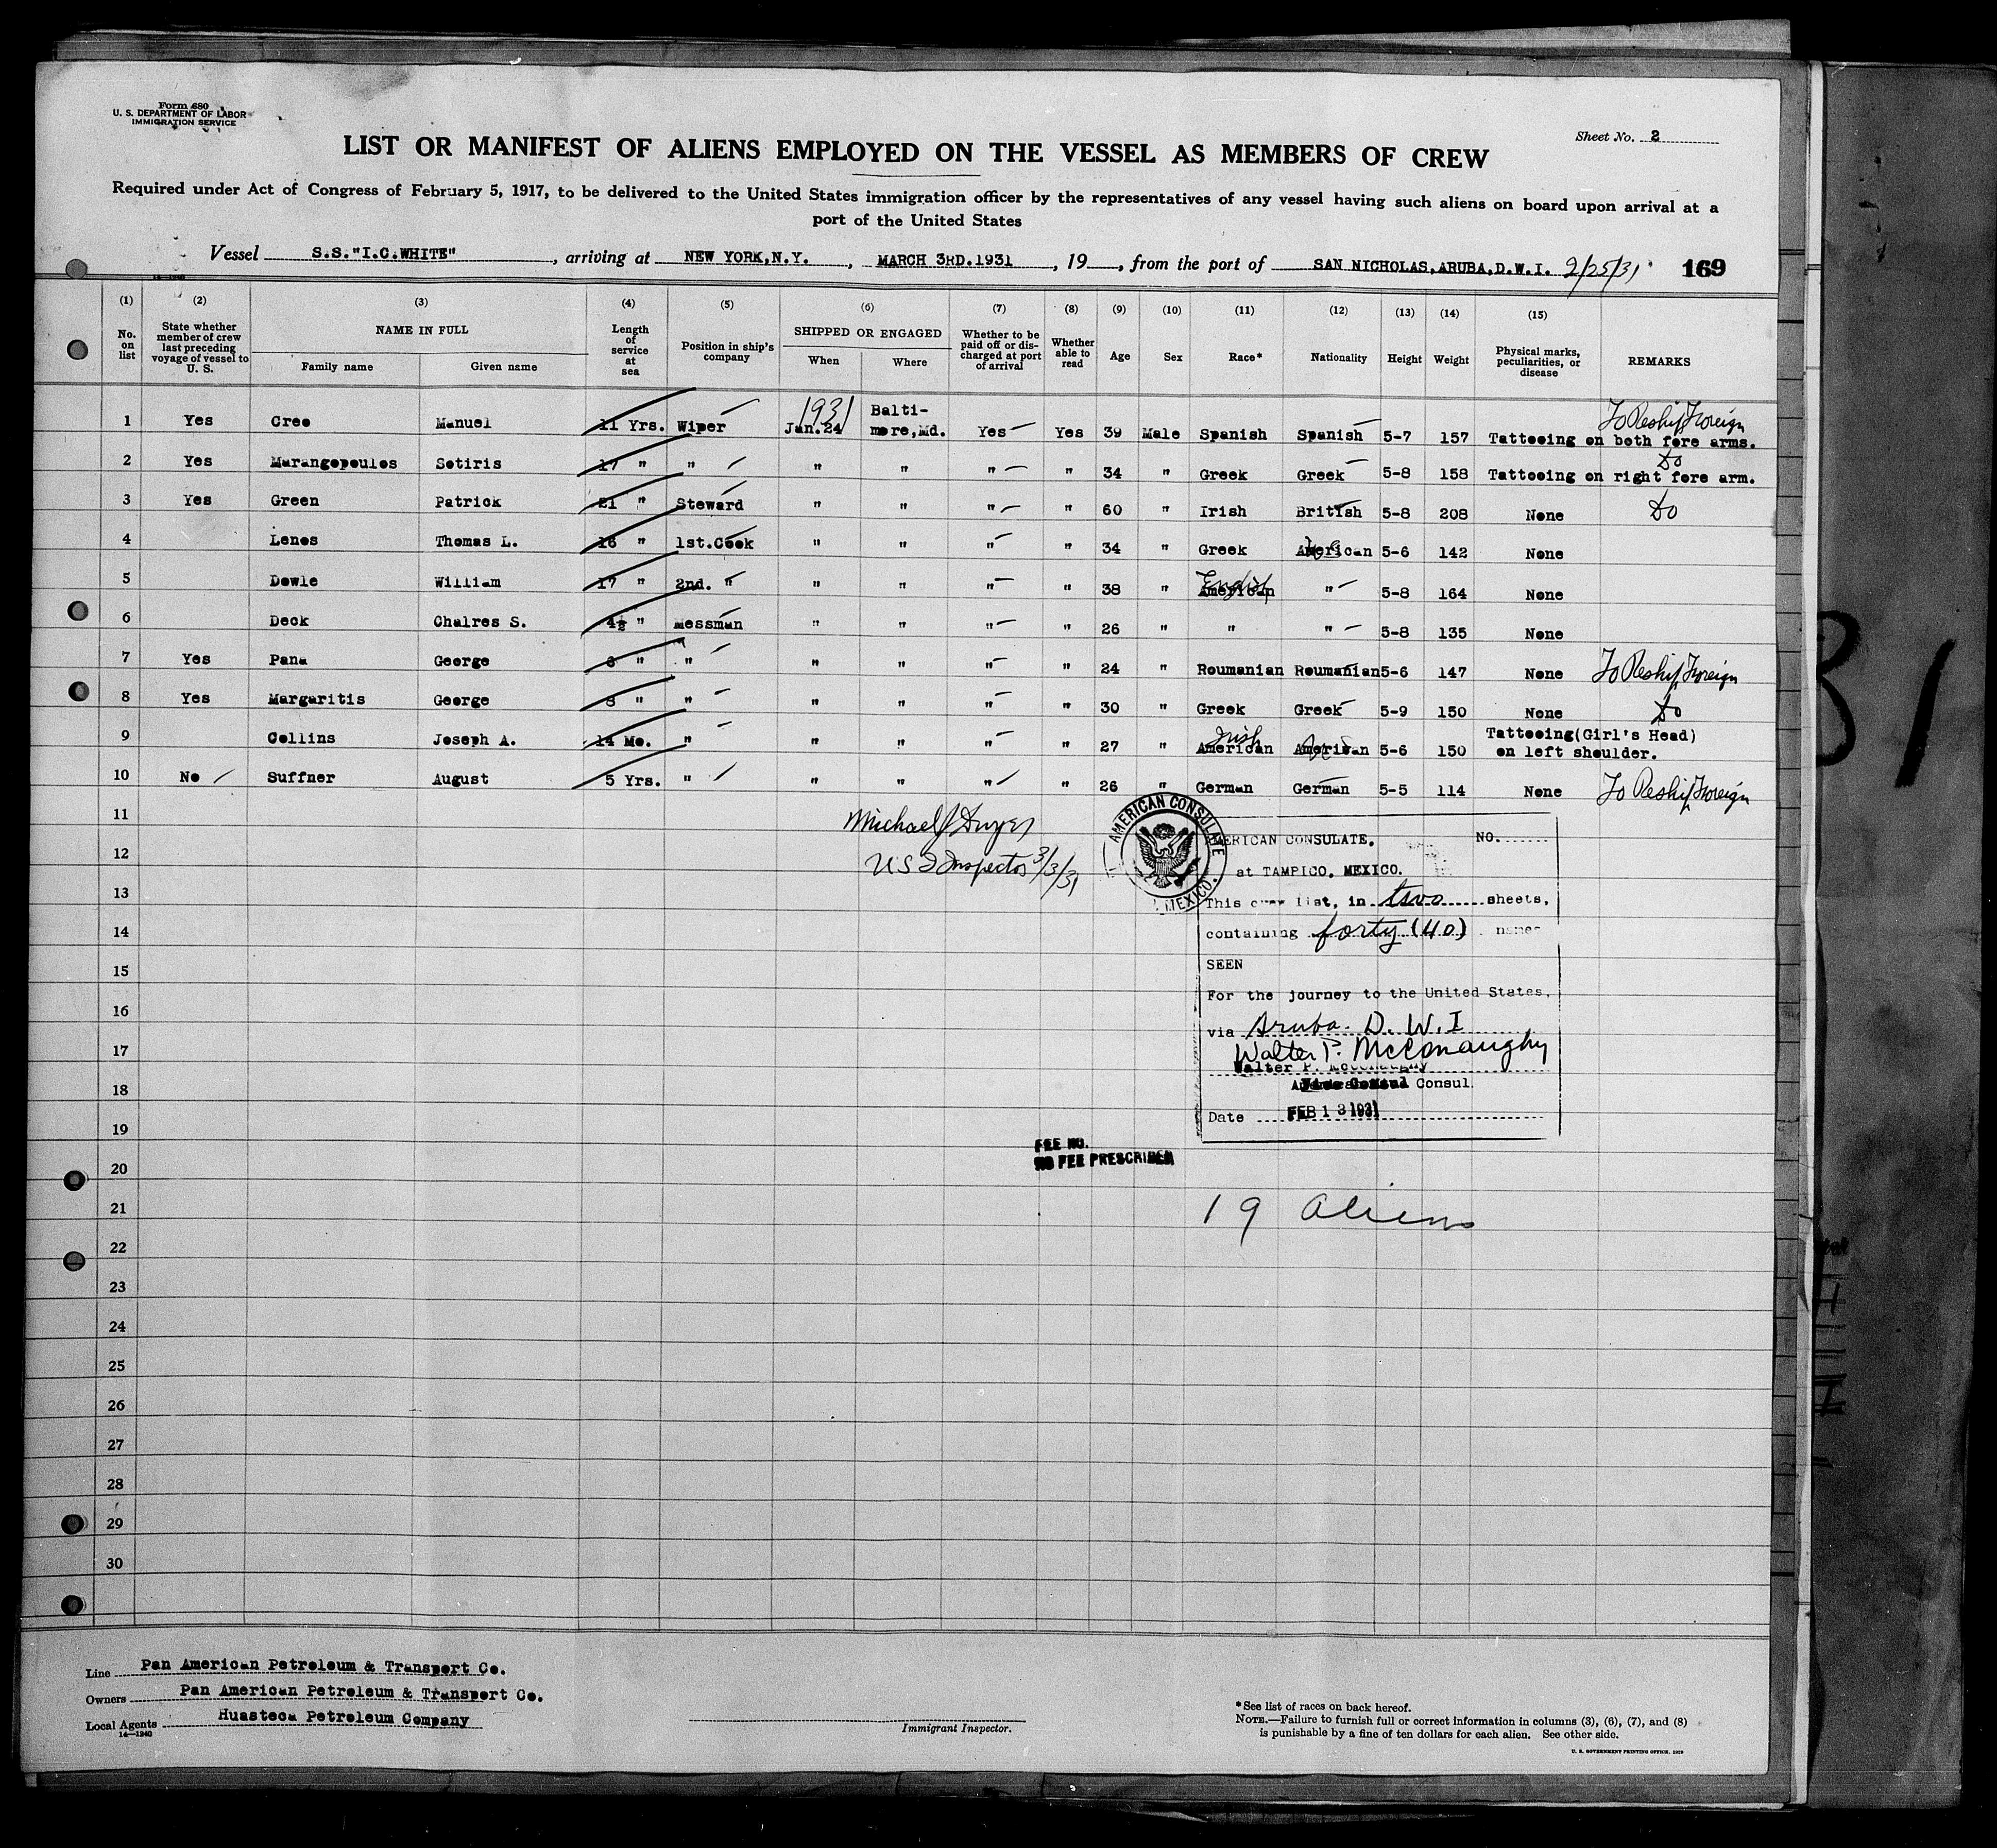 Form 680
U. S. DEPARTMENT OF LABOR
IMMIGRATION SERVICE
Sheet No. 2
LIST OR MANIFEST OF ALIENS EMPLOYED ON THE VESSEL AS MEMBERS OF CREW
Required under Act of Congress of February 5, 1917, to be delivered to the United States immigration officer by the representatives of any vessel having such aliens on board upon arrival at a
port of the United States
Vessel S.S."I.C.WHITE", arriving at NEW YORK,N.Y., MARCH 3RD.1931, 19, from the port of SAN NICHOLAS,ARUBA,D.W.I. 2/25/31 169
(1) (2) (3) (4) (5) (6) (7) (8) (9) (10) (11) (12) (13) (14) (15)
No. on list State whether member of crew last preceding voyage of vessel to U. S. NAME IN FULL Family name Given name Length of service at sea Position in ship's company SHIPPED OR ENGAGED When Where Whether to be paid off or discharged at port of arrival Whether able to read Age Sex Race* Nationality Height Weight Physical marks, peculiarities, or disease REMARKS
1 Yes Cree Manuel 11 Yrs. Wiper 1931 Jan.24 Balti-more,Md. Yes Yes 39 Male Spanish Spanish 5-7 157 Tattooing on both fore arms. To Reship Foreign
2 Yes Marangopoulos Sotiris 17 " " " " " " 34 " Greek Greek 5-8 158 Tattooing on right fore arm. Do
3 Yes Green Patrick 21 " Steward " " " " 60 " Irish British 5-8 208 None Do
4 Lenos Thomas L. 16 " 1st.Cook " " " " 34 " Greek American 5-6 142 None
5 Dowle William 17 " 2nd. " " " " " 38 " American English " 5-8 164 None
6 Deck Chalres S. 4½ " Messman " " " " 26 " " " 5-8 135 None
7 Yes Pana George " " " " " " 24 " Roumanian Roumanian 5-6 147 None To Reship Foreign
8 Yes Margaritis George 8 " " " " " " 30 " Greek Greek 5-9 150 None Do
9 Collins Joseph A. 14 Mo. " " " " " 27 " American Irish American 5-6 150 Tattooing(Girl's Head) on left shoulder.
10 No Suffner August 5 Yrs. " " " " " 26 " German German 5-5 114 None To Reship Foreign
11
12
13
14
15
16
17
18
19
20
21
22
23
24
25
26
27
28
29
30
Michael J Dwyer
U S I Inspector 3/3/31
AMERICAN CONSULATE
MEXICO.
AMERICAN CONSULATE, NO.
at TAMPICO, MEXICO.
This crew list, in two sheets,
containing forty (40) names
SEEN
For the journey to the United States,
via Aruba. D. W. I
Walter P. McConaughy
Walter P. McConaughy
Vice Consul Consul.
Date FEB 13 1931
FEE NO.
NO FEE PRESCRIBED
19 aliens
Line Pan American Petroleum & Transport Co.
Owners Pan American Petroleum & Transport Co.
Local Agents Huasteca Petroleum Company
14—1240
Immigrant Inspector.
*See list of races on back hereof.
NOTE.—Failure to furnish full or correct information in columns (3), (6), (7), and (8)
is punishable by a fine of ten dollars for each alien. See other side.
U. S. GOVERNMENT PRINTING OFFICE: 1929
31